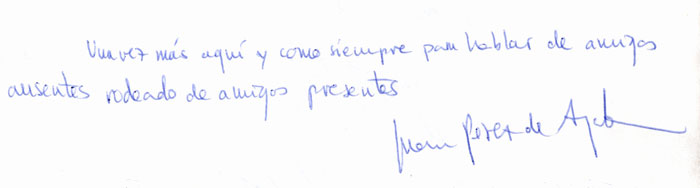 Una vez más aquí y como siempre para hablar de amigos
ausentes rodeado de amigos presentes
Juan Perez de Ayala